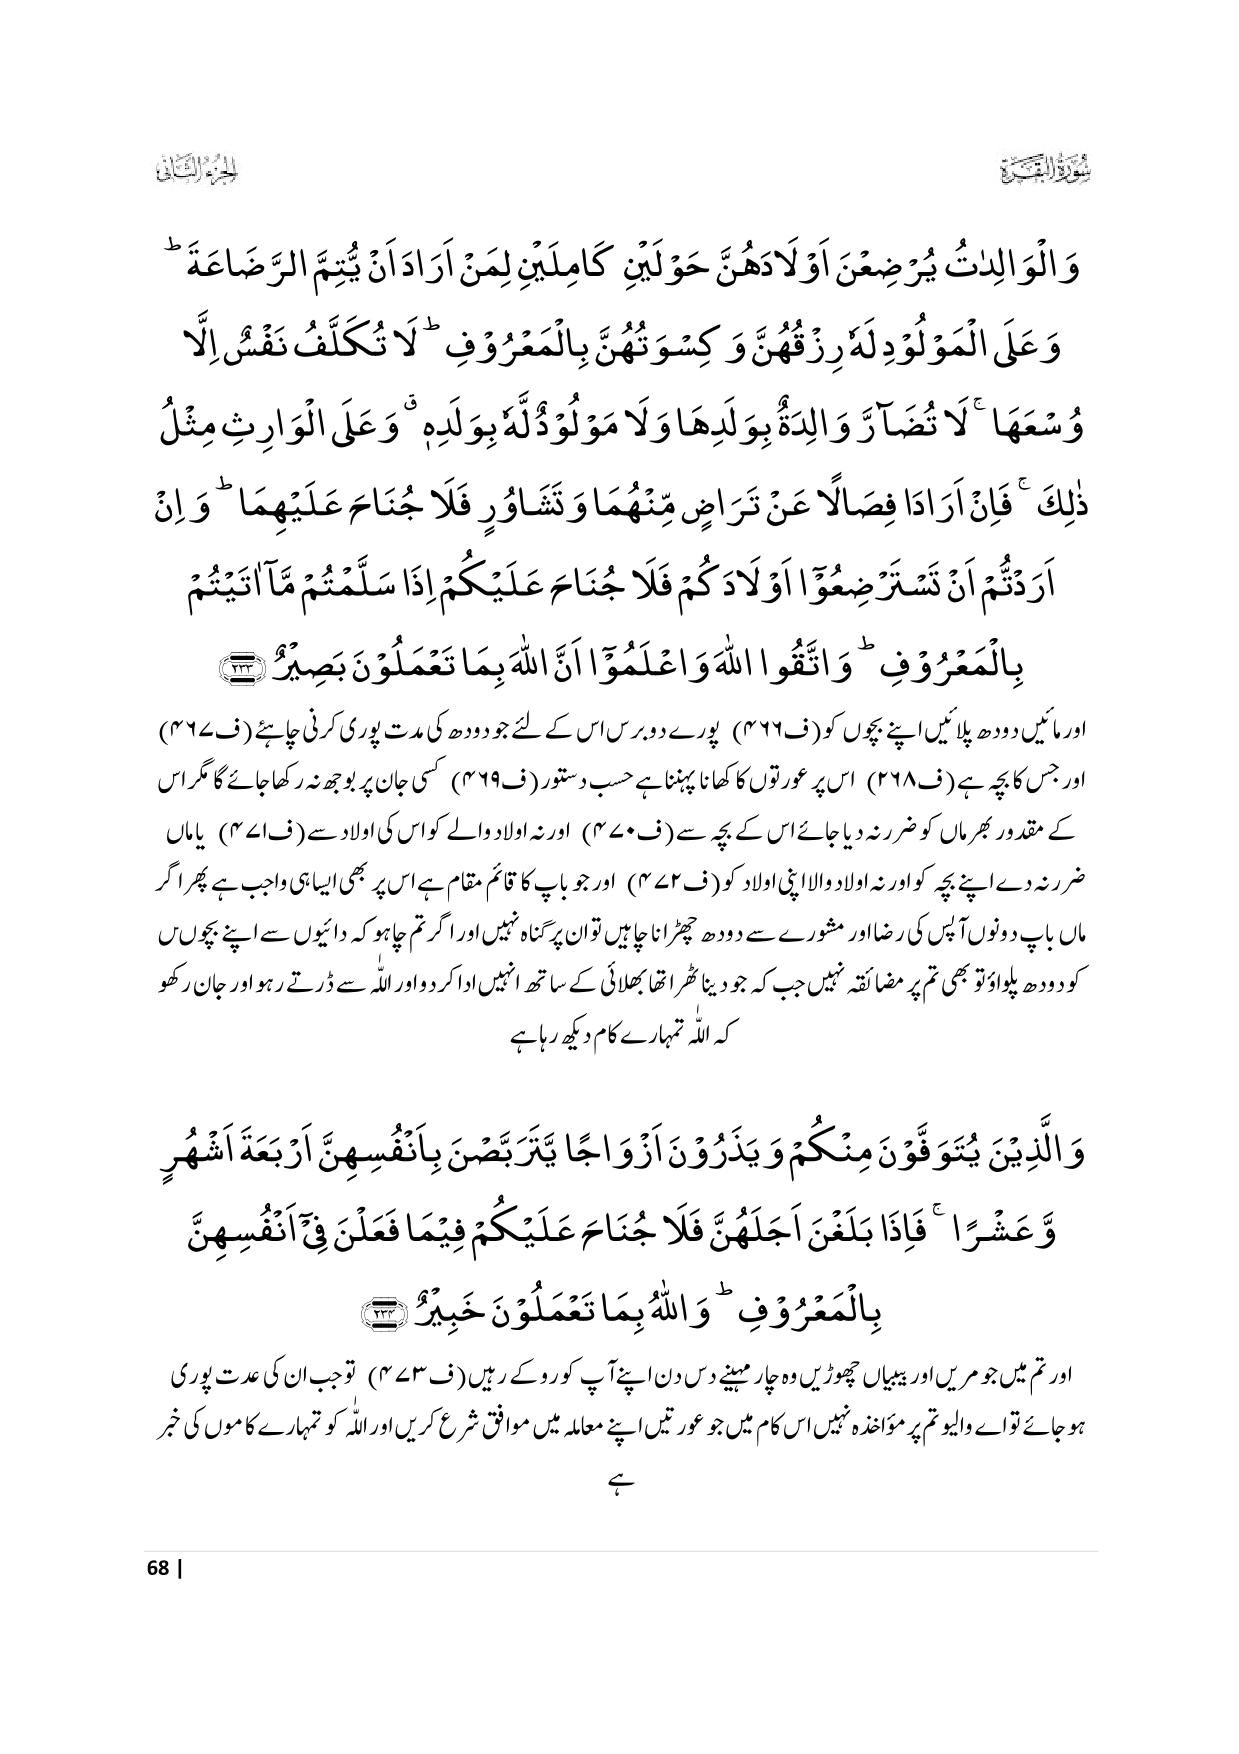 سُوْرَۃُ الْبَقَرَۃِ
الجزء الثانی
وَالْوَالِدٰتُ یُرْضِعْنَ اَوْلَادَهُنَّ حَوْلَیْنِ كَامِلَیْنِ لِمَنْ اَرَادَ اَنْ یُّتِمَّ الرَّضَاعَةَ ؕ
وَ عَلَی الْمَوْلُوْدِ لَهٗ رِزْقُهُنَّ وَ كِسْوَتُهُنَّ بِالْمَعْرُوْفِ ؕ لَا تُكَلَّفُ نَفْسٌ اِلَّا
وُسْعَهَا ۚ لَا تُضَآرَّ وَالِدَةٌۢ بِوَلَدِهَا وَلَا مَوْلُوْدٌ لَّهٗ بِوَلَدِهٖ ٭ وَ عَلَی الْوَارِثِ مِثْلُ
ذٰلِكَ ۚ فَاِنْ اَرَادَا فِصَالًا عَنْ تَرَاضٍ مِّنْهُمَا وَ تَشَاوُرٍ فَلَا جُنَاحَ عَلَیْهِمَا ؕ وَ اِنْ
اَرَدْتُّمْ اَنْ تَسْتَرْضِعُوْۤا اَوْلَادَكُمْ فَلَا جُنَاحَ عَلَیْكُمْ اِذَا سَلَّمْتُمْ مَّاۤ اٰتَیْتُمْ
بِالْمَعْرُوْفِ ؕ وَ اتَّقُوا اللّٰهَ وَ اعْلَمُوْۤا اَنَّ اللّٰهَ بِمَا تَعْمَلُوْنَ بَصِیْرٌ ﴿۲۳۳﴾
اور مائیں دودھ پلائیں اپنے بچوں کو (ف۴۶۶) پورے دو برس اس کے لئے جو دودھ کی مدت پوری کرنی چاہئے (ف۴۶۷)
اور جس کا بچہ ہے (ف۲۶۸) اس پر عورتوں کا کھانا پہننا ہے حسب دستور (ف۴۶۹) کسی جان پر بوجھ نہ رکھا جائے گا مگر اس
کے مقدور بھر ماں کو ضرر نہ دیا جائے اس کے بچہ سے (ف۴۷۰) اور نہ اولاد والے کو اس کی اولاد سے (ف۴۷۱) یا ماں
ضرر نہ دے اپنے بچہ کو اور نہ اولاد والا اپنی اولاد کو (ف۴۷۲) اور جو باپ کا قائم مقام ہے اس پر بھی ایسا ہی واجب ہے پھر اگر
ماں باپ دونوں آپس کی رضا اور مشورے سے دودھ چھڑانا چاہیں تو ان پر گناہ نہیں اور اگر تم چاہو کہ دائیوں سے اپنے بچوں
کو دودھ پلواؤ تو بھی تم پر مضائقہ نہیں جب کہ جو دینا ٹھرا تھا بھلائی کے ساتھ انہیں ادا کردو اور اللّٰہ سے ڈرتے رہو اور جان رکھو
کہ اللّٰہ تمہارے کام دیکھ رہا ہے
وَالَّذِیْنَ یُتَوَفَّوْنَ مِنْكُمْ وَ یَذَرُوْنَ اَزْوَاجًا یَّتَرَبَّصْنَ بِاَنْفُسِهِنَّ اَرْبَعَةَ اَشْهُرٍ
وَّ عَشْرًا ۚ فَاِذَا بَلَغْنَ اَجَلَهُنَّ فَلَا جُنَاحَ عَلَیْكُمْ فِیْمَا فَعَلْنَ فِیْۤ اَنْفُسِهِنَّ
بِالْمَعْرُوْفِ ؕ وَ اللّٰهُ بِمَا تَعْمَلُوْنَ خَبِیْرٌ ﴿۲۳۴﴾
اور تم میں جو مریں اور بیبیاں چھوڑیں وہ چار مہینے دس دن اپنے آپ کو روکے رہیں (ف۴۷۳) تو جب ان کی عدت پوری
ہوجائے تو اے والیو تم پر مؤاخذہ نہیں اس کام میں جو عورتیں اپنے معاملہ میں موافق شرع کریں اور اللّٰہ کو تمہارے کاموں کی خبر
ہے
68 |